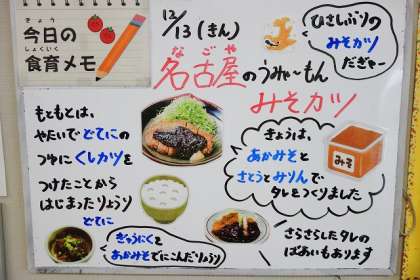 きょう
今日の
しょくいく
食育メモ
12/13(きん)
なごや
名古屋のうみゃ～もん
みそカツ
ひさしぶりの
みそカツ
だぎゃー
もともとは、
やたいでどてにの
つゆにくしカツを
つけたことから
はじまったりょうり
どてに
ぎゅうにくを
あかみそでにこんだりょうり
きょうは、
あかみそと
さとうとみりんで
タレをつくりました
みそ
さらさらしたタレの
ばあいもあります